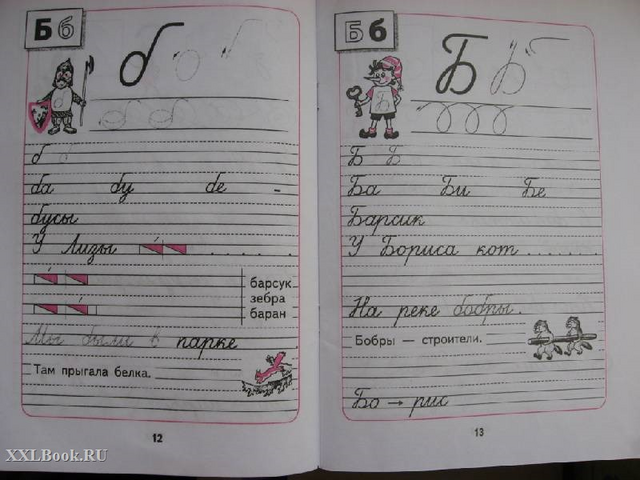 Б б
б
б
ба бу бе -
бусы
У Лизы . . . . . .
барсук
зебра
баран
Мы были в парке
Там прыгала белка.
12
Б б
Б Б
Б Б
Ба Би Бе
Барсик
У Бориса кот . . . . . . .
На реке бобры.
Бобры — строители.
Бо → рис
13
XXLBook.RU